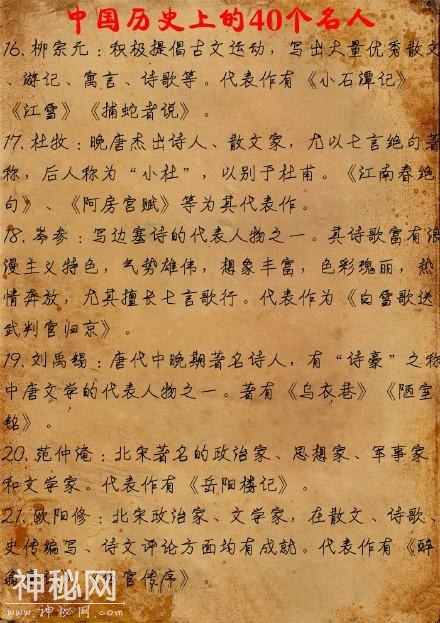 中国历史上的40个名人
16.柳宗元：积极提倡古文运动，写出大量优秀散文
、游记、寓言、诗歌等。代表作有《小石潭记》
《江雪》《捕蛇者说》。
17.杜牧：晚唐杰出诗人、散文家，尤以七言绝句著
称，后人称为“小杜”，以别于杜甫。《江南春绝
句》、《阿房宫赋》等为其代表作。
18.岑参：写边塞诗的代表人物之一。其诗歌富有浪
漫主义特色，气势雄伟，想象丰富，色彩瑰丽，热
情奔放，尤其擅长七言歌行。代表作为《白雪歌送
武判官归京》。
19.刘禹锡：唐代中晚期著名诗人，有“诗豪”之称
中唐文学的代表人物之一。著有《乌衣巷》《陋室
铭》。
20.范仲淹：北宋著名的政治家、思想家、军事家
和文学家。代表作有《岳阳楼记》。
21.欧阳修：北宋政治家、文学家，在散文、诗歌、
史传编写、诗文评论方面均有成就。代表作有《醉
翁官传序》。
神秘网
www.神秘网.com